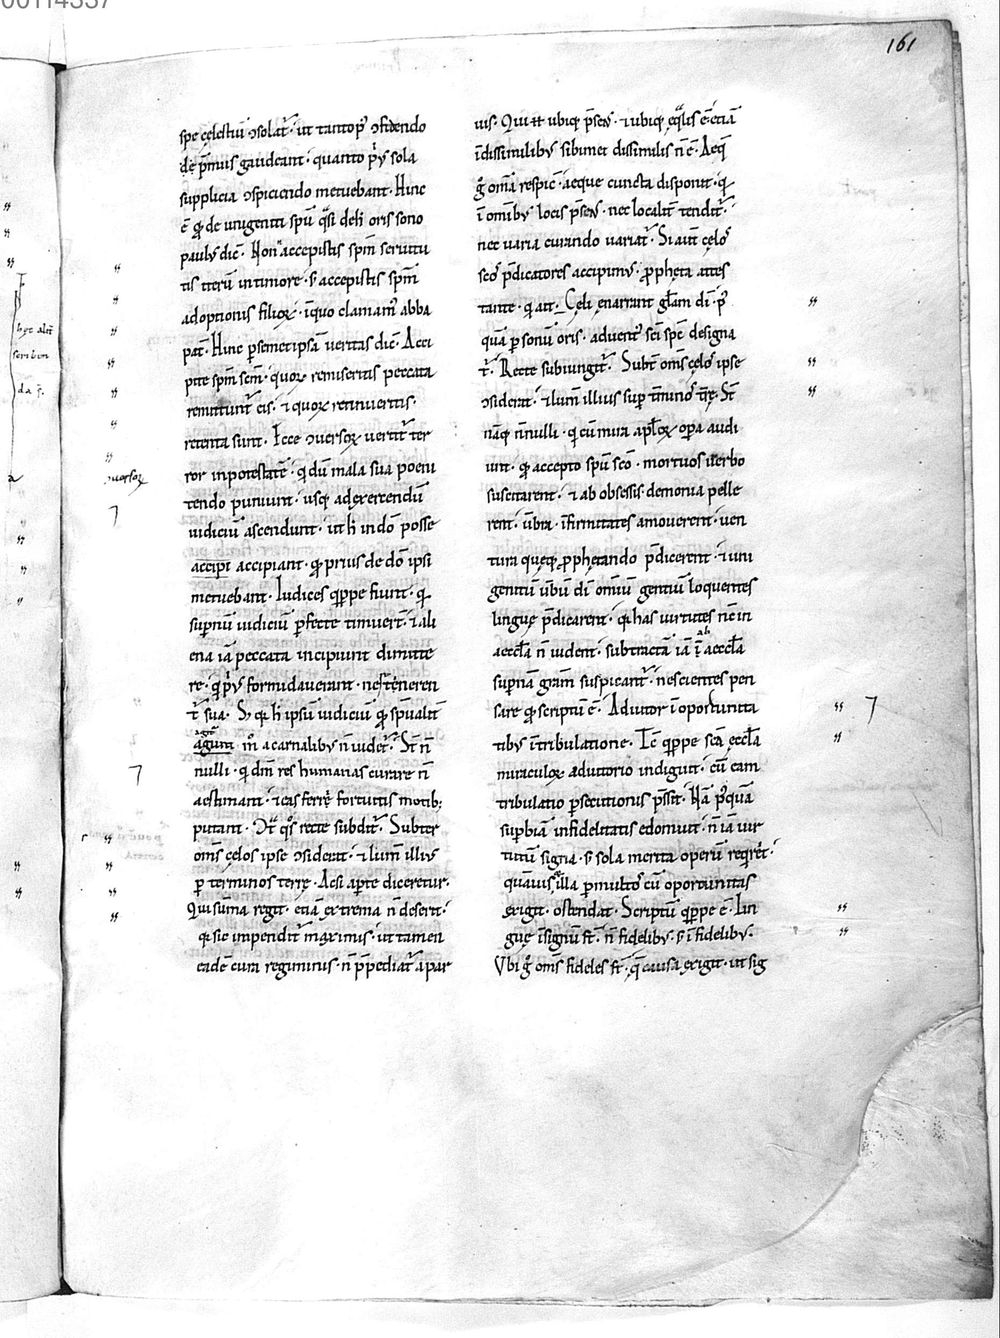 00114337
161
spe cęlestiũ ↄsolat᷑· ut tantop̃ ↄfidendo
dẹ p̃mus gaudeant· quanto pʳꝰ sola
supplicia ↄspiciendo metuebant· Hinc
ẽ ꝙ de unigeniti spũ q̃si deh̃ oris sono
paulꝰ dic̃· Non accepistis spm̃ seruitu
tis iterũ in timore· s̃ accepistis spm̃
adoptionis filioꝝ· ĩquo clamam᷒ abba
pat̃· Hinc p̱semetipsã ueritas dic̃· Acci
pite spm̃ scm̃· quoꝝ remiseritis peccata
remittunt᷑ eis· ⁊ quoꝝ retinueritis·
retenta sunt· Ecce ↄuersoꝝ uertit᷑ ter
ror in potestatẽ· q̇ dũ mala sua poeni
tendo puniunt· usq; ad exercendũ
iudiciũ ascendunt· ut h̃ in dõ posse
accipi accipiant· ꝙ prius de dõ ipsi
metuebant· Iudices q̃ppe fiunt· q̇
sup̃nũ iudiciũ p̱fecte timuert̃· ⁊ ali
ena iã peccata incipiunt dimitte
re· q̇ pʳꝰ formidauerant· ne s̃ teneren
t᷑ sua· Sꝫ q̇ h̃ ipsũ iudiciũ ꝙ sp̃ualit̃
agit᷑
agunt m̊ a carnalibꝰ ñ uidet᷑· St̃ ñ
nulli· q̇ dm̃ res humanas curare ñ
aestimant· ⁊ eas ferri fortuitis motibꝫ
putant· Ↄt̃ q̃s recte subdit᷑· Subter
om̃s cęlos ipse ↄsiderat· ⁊ lum̃ illiꝰ
sup̱ terminos terrę· Ac si ap̱te diceretur·
Qui sũma regit· etiã extrema ñ deserit·
q̇ sic impendit᷑ maximis· ut tamen
eadẽ cura regiminis· ñ p̃pediat᷑ a par
uis· Qui ubiq; p̃sens· ⁊ ubiq; eq̃lis ẽ· etiã
ĩdissimilibꝰ sibimet dissimilis ñ ẽ· Aeq̃
g̊ om̃a respic̃· aeque cuncta disponit· q̇
ĩ omĩbꝰ locis p̃sens· nec localit̃ tendit᷑·
nec uaria curando uariat᷑· Si aut̃ cęlos
scõs p̃dicatores accipimꝰ· ꝓpheta attes
tante· q̇ ait· Cęli enarrant gl̃am dĩ· pꝰ
quã p̱sonuĩ oris· aduent᷒ scĩ sp̃c designa
t᷑· Recte subiungit᷑· Subt̃ om̃s cęlos ipse
ↄsiderat· ⁊ lum̃ illius sup̱ t̃minos t̃rę· St̃
nãq; ñnulli· q̇ cũ mira apl̃oꝝ op̱a audi
unt· ꝙ accepto spũ scõ· mortuos ũerbo
suscitarent· ⁊ ab obsessis demonia pelle
rent· ũbra ĩfirmitates amouerent· uen
tura quęq; ꝓphetando p̃dicerent· ⁊ uni
genitũ ũbũ dĩ omiũ gentiũ loquentes
linguę p̃dicarent· q̇ has uirtutes nc̃ in
aeccl̃a ñ uident· subtractã iã ĩ aeccl̃a
ab
sup̱nã gr̃am suspicant᷑· nescientes pen
sare ꝙ scriptũ ẽ· Adiutor ĩ oportunita
tibꝰ ĩ tribulatione· Tc̃ q̃ppe sc̃a eccl̃a
miraculoꝝ adiutorio indiguit· cũ eam
tribulatio p̱secutionis p̃ssit· Nã p᷒quã
sup̱biã infidelitatis edomuit· ñ iã uir
tutũ signa· s̃ sola merita operũ req̇rit·
quãuis ⁊ illa p̱ multos cũ oportunitas
exigit· ostendat· Scriptũ q̃ppe ẽ· Lin
guę ĩ signũ st̃· ñ fidelibꝰ· s̃ ĩfidelibꝰ·
Vbi g̊ om̃s fideles st̃· q̃ causa exigit· ut sig